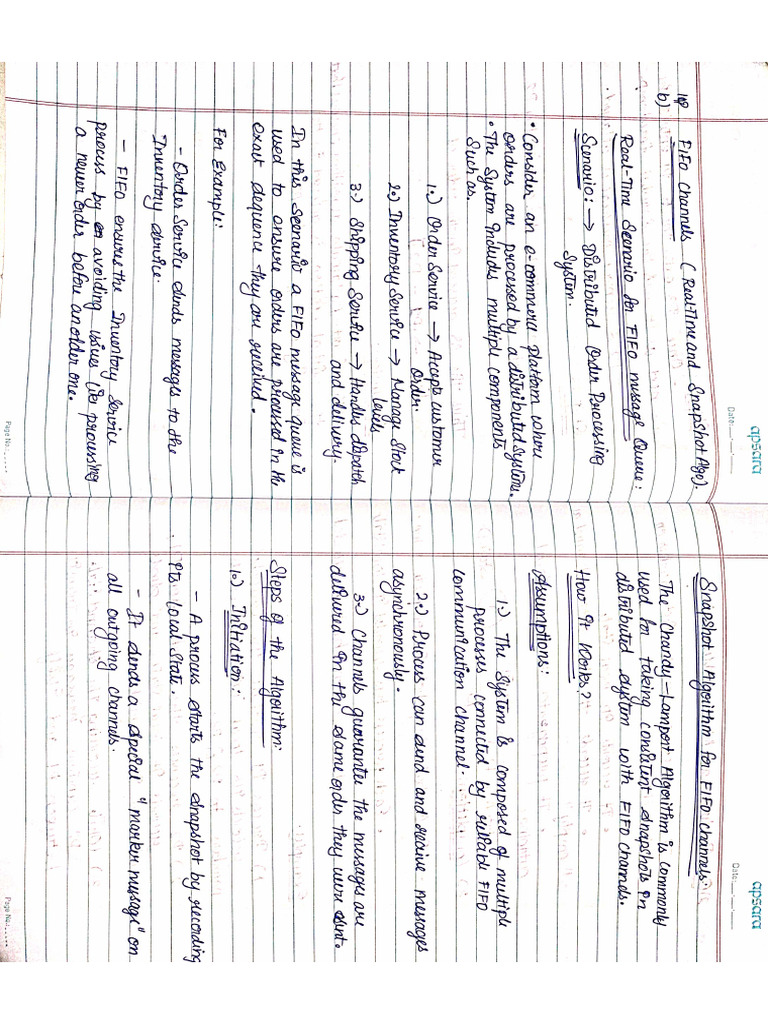 apsara
Date:
10
b) FIFO Channels (Real Time and Snapshot Algo).
Real-Time Scenario for FIFO message Queue:
Scenario: → Distributed Order Processing
System.
• Consider an e-commerce platform where
orders are processed by a distributed system.
• The System includes multiple components
Such as.
1.) Order Service → Accepts customer
Order.
2.) Inventory Service → Manage Stock
levels
3.) Shipping Service → Handles dispatch
and delivery.
In this Scenario a FIFO message queue is
used to ensure orders are processed in the
exact sequence they are received.
For Example:
- Order Service sends messages to the
Inventory service.
- FIFO ensures the Inventory Service
process by avoiding issues like processing
a newer order before an older one.
Page No.
apsara
Date:
Snapshot Algorithm for FIFO channels:
The Chandy-Lamport Algorithm is commonly
used for taking consistent snapshots in
distributed system with FIFO channels.
How it Works?
Assumptions:
1.) The System is composed of multiple
processes connected by reliable FIFO
communication channel.
2.) Process can send and receive messages
asynchronously.
3.) Channels guarantee the messages are
delivered in the same order they were sent.
Steps of the Algorithm:
1.) Initiation:
- A process starts the snapshot by recording
Its local state.
- It sends a special "marker message" on
all outgoing channels.
Page No.